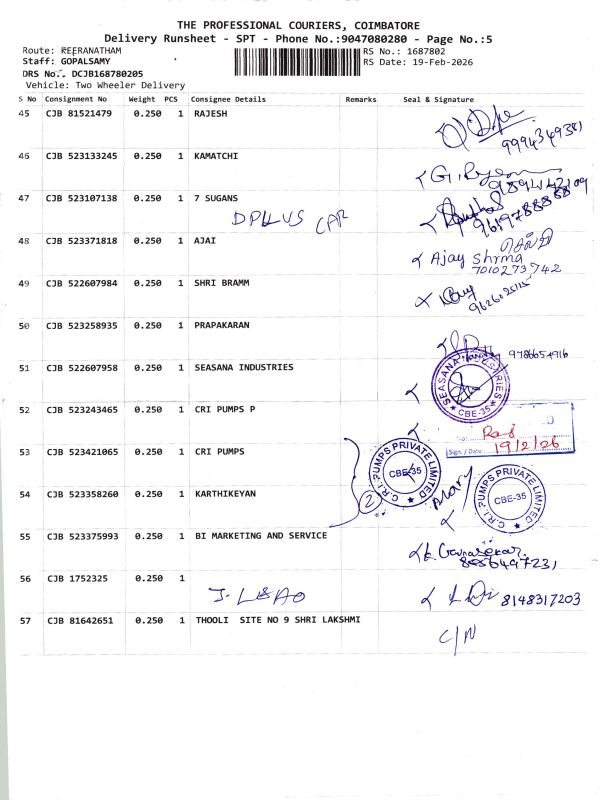 THE PROFESSIONAL COURIERS, COIMBATORE
Delivery Runsheet - SPT - Phone No.:9047080280 - Page No.:5
Route: REERANATHAM RS No.: 1687802
Staff: GOPALSAMY RS Date: 19-Feb-2026
DRS No.. DCJB168780205
Vehicle: Two Wheeler Delivery
S No Consignment No Weight PCS Consignee Details Remarks Seal & Signature
45 CJB 81521479 0.250 1 RAJESH
9994349381
46 CJB 523133245 0.250 1 KAMATCHI
47 CJB 523107138 0.250 1 7 SUGANS
CAR
48 CJB 523371818 0.250 1 AJAI
Ajay Shrma
7010273742
49 CJB 522607984 0.250 1 SHRI BRAMM
50 CJB 523258935 0.250 1 PRAPAKARAN
9786654916
51 CJB 522607958 0.250 1 SEASANA INDUSTRIES
SEASANA INDUSTRIES
CBE-35
52 CJB 523243465 0.250 1 CRI PUMPS P
Sign. / Date: 19/2/26
53 CJB 523421065 0.250 1 CRI PUMPS
C.R.I. PUMPS PRIVATE LIMITED
CBE-35
2
54 CJB 523358260 0.250 1 KARTHIKEYAN
C.R.I. PUMPS PRIVATE LIMITED
CBE-35
55 CJB 523375993 0.250 1 BI MARKETING AND SERVICE
56 CJB 1752325 0.250 1
8148317203
57 CJB 81642651 0.250 1 THOOLI SITE NO 9 SHRI LAKSHMI
C/N